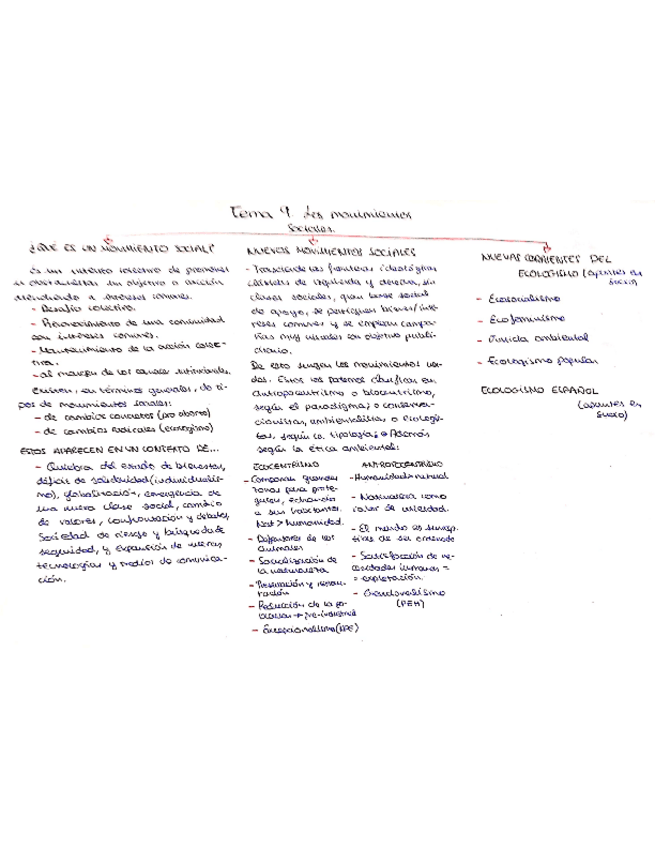 Tema 9 Los movimientos
sociales.
¿QUÉ ES UN MOVIMIENTO SOCIAL?
Es un intento colectivo de promover
u obstaculizar un objetivo o acción
atendiendo a intereses comunes.
- Desafío colectivo.
- Reconocimiento de una comunidad
con intereses comunes.
- Mantenimiento de la acción colec-
tiva.
- al margen de los canales
Existen, en términos generales, de ti-
pos de movimientos sociales:
- de cambios concretos (pro aborto)
- de cambios radicales (ecologismo)
ESTOS APARECEN EN UN CONTEXTO DE...
- Quiebra del estado de bienestar,
déficit de solidaridad (individualis-
mo), globalización, emergencia de
una nueva clase social, cambio
de valores, confrontación y debates,
Sociedad de riesgo y búsqueda de
seguridad, y expansión de nuevas
tecnologías y medios de comunica-
ción.
NUEVOS MOVIMIENTOS SOCIALES
- Trasciende las fronteras ideológicas
clásicas de izquierda y derecha, sin
clases sociales, gran base social
de apoyo, se persiguen bienes/inte-
reses comunes y se emplean campa-
ñas muy visuales con objetivo publi-
citario.
De esto surgen los movimientos ver-
des. Estos los podemos clasificar en
antropocentrismo o biocentrismo,
según el paradigma; o conserva-
cionistas, ambientalistas o ecologis-
tas, según la tipología; Además
según la ética ambiental:
ECOCENTRISMO
- Comparar grandes
zonas para prote-
gerlas, echando
a sus habitantes.
Nat > humanidad.
- Defensores de los
animales
- Socialización de
la naturaleza
- Restauración y repa-
ración
- Reducción de la po-
blación → pre-industrial
- Excepcionalismo (NPE)
ANTROPOCENTRISMO
- Humanidad > natural
- Naturaleza como
valor de utilidad.
- El mundo es suscep-
tible de ser ordenado
- Satisfacción de ne-
cesidades humanas =
= explotación.
(PEH)
NUEVAS CORRIENTES DEL
ECOLOGISMO (apuntes en
sucio)
- Ecosocialismo
- Ecofeminismo
- Justicia ambiental
- Ecologismo popular
ECOLOGISMO ESPAÑOL
(apuntes en
sucio)